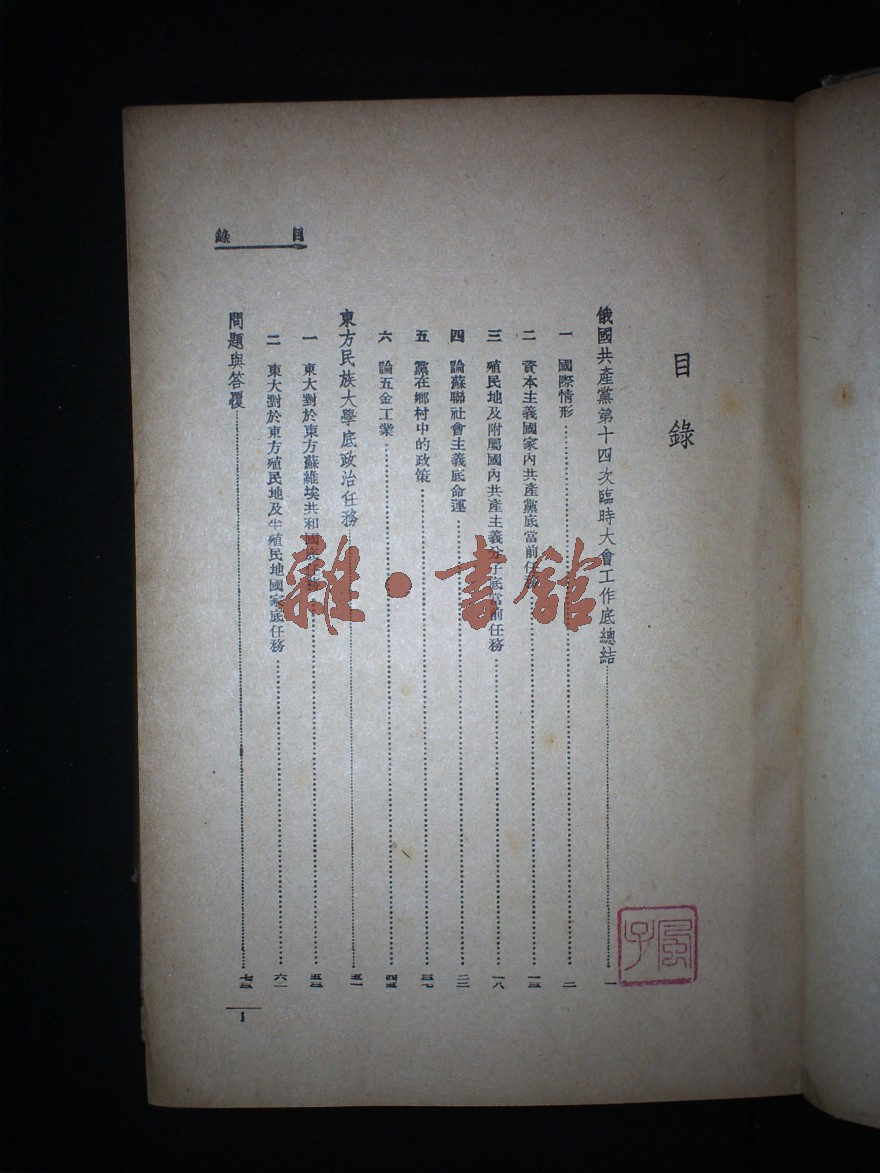 目錄
目錄
俄國共產黨第十四次臨時大會工作底總結……一
一 國際情形……二
二 資本主義國家內共產黨底當前任務……一三
三 殖民地及附屬國內共產主義分子底當前任務……一八
四 論蘇聯社會主義底命運……二三
五 黨在鄉村中的政策……三七
六 論五金工業……四五
東方民族大學底政治任務……五一
一 東大對於東方蘇維埃共和國底任務……五三
二 東大對於東方殖民地及半殖民地國家底任務……六一
問題與答覆……七三
1
雜·書館